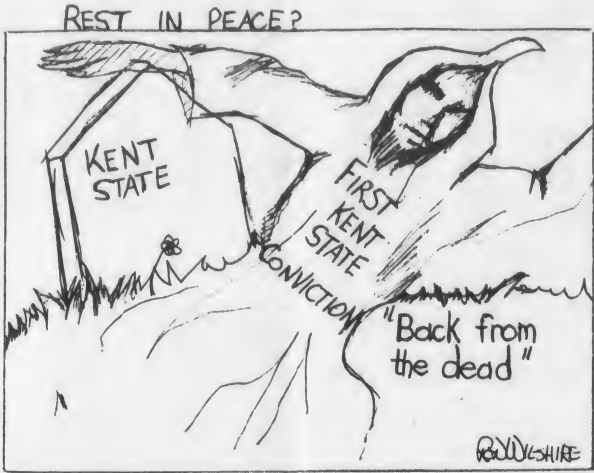 REST IN PEACE?
KENT
STATE
FIRST
KENT
STATE
CONVICTION
"Back from
the dead"
WILSHIRE